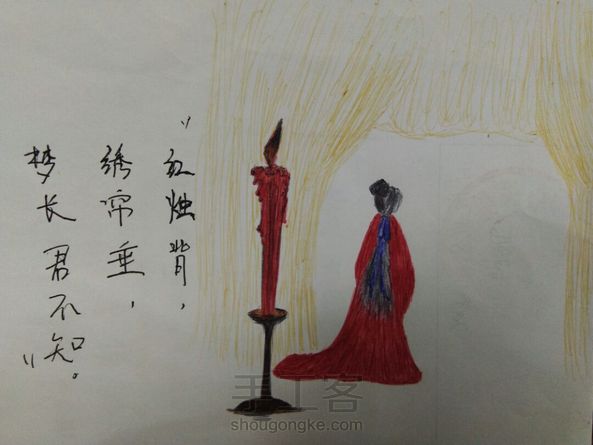 “红烛背，
绣帘垂，
梦长君不知。”
手工客
shougongke.com